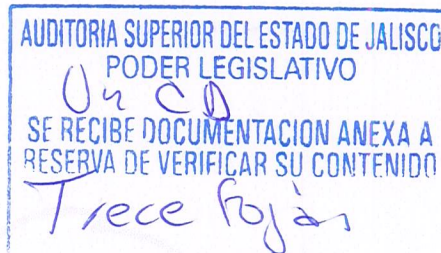 AUDITORIA SUPERIOR DEL ESTADO DE JALISCO
PODER LEGISLATIVO
Un CD
SE RECIBE DOCUMENTACION ANEXA A
RESERVA DE VERIFICAR SU CONTENIDO
Trece fojas